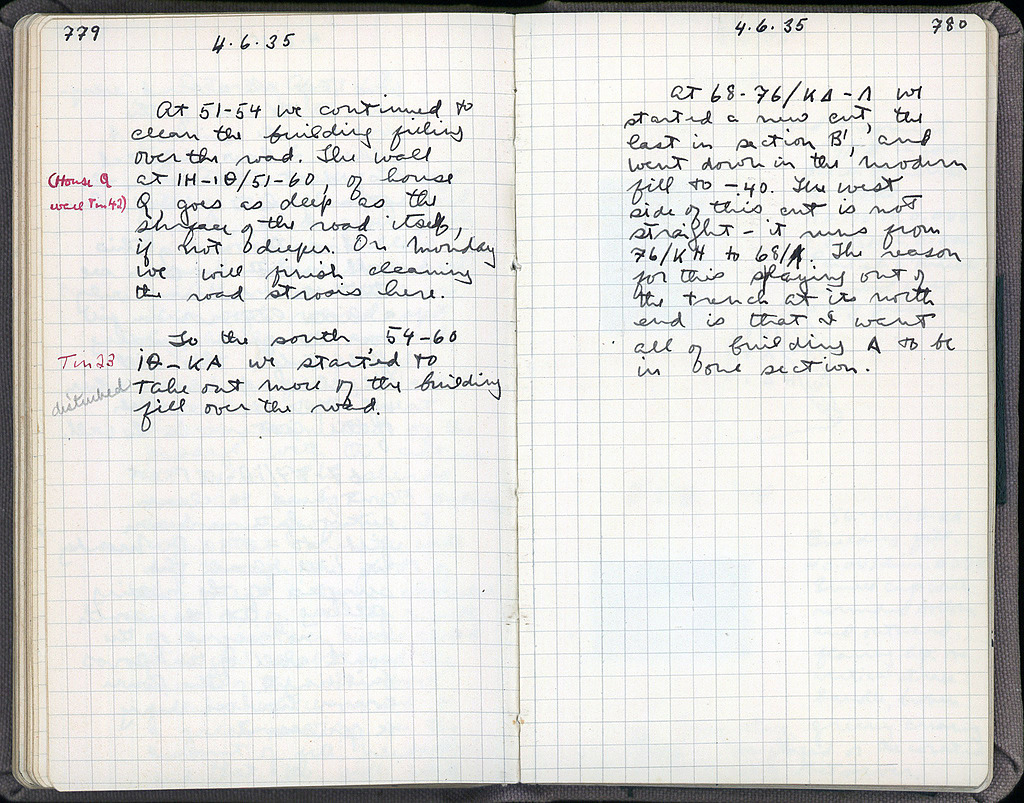 779
4.6.35
At 51-54 we continued to
clean the building filling
over the road. The wall
(House Q
at ΙΗ-ΙΘ/51-60, of house
well Tin 42)
Q, goes as deep as the
surface of the road itself,
if not deeper. On Monday
we will finish cleaning
the road strosis here.
To the south 54-60
Tin 23
ΙΘ-ΚΛ we started to
disturbed
take out more of the building
fill over the road.
4.6.35
780
At 68-76/ΚΔ-Λ we
started a new cut, the
last in section B', and
went down in the modern
fill to -.40. The west
side of this cut is not
straight - it runs from
76/ΚΗ to 68/Λ. The reason
for this splaying out of
the trench at its north
end is that I want
all of building A to be
in one section.